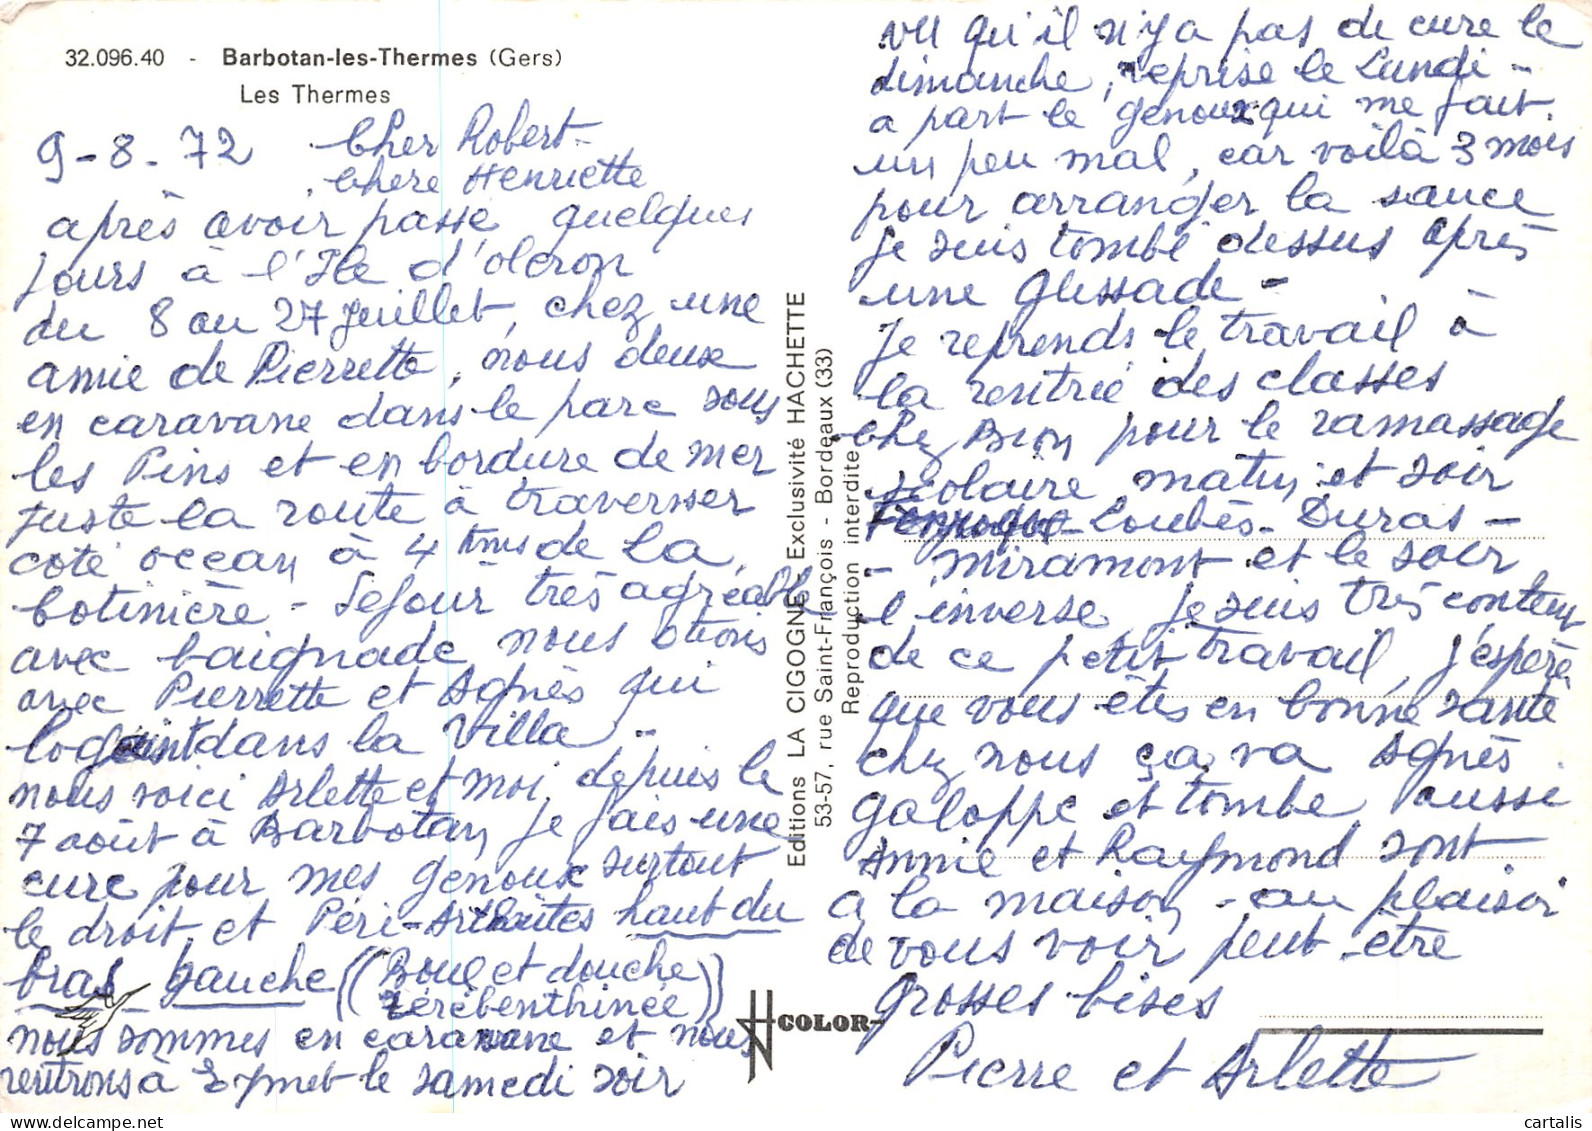 32.096.40 - Barbotan-les-Thermes (Gers)
Les Thermes
9-8-72 Cher Robert
Chere Henriette
après avoir passé quelques
jours à l'Ile d'oleron
du 8 au 27 Juillet, chez une
amie de Pierrette, nous deux
en caravane dans le parc sous
les Pins et en bordure de mer
juste la route à traverser
coté ocean à 4 Kms de la
cotinière - Sejour très agréable
avec baignade, nous etions
avec Pierrette et Agnès qui
logeaint dans la Villa -
nous voici Arlette et moi, depuis le
7 août à Barbotan, je fais une
cure pour mes genoux surtout
le droit et Péri-Arthrites haut du
bras gauche (Boue et douche
térébenthinée)
nous sommes en caravane et nous
rentrons à Eymet le samedi soir
Editions LA CIGOGNE Exclusivité HACHETTE
53-57, rue Saint-François - Bordeaux (33)
Reproduction interdite
COLOR
vu qu'il n'y a pas de cure le
dimanche, reprise le Lundi -
a part le genoux qui me fait
un peu mal, car voilà 3 mois
pour arranger la sauce
je suis tombé dessus après
une glissade -
Je reprends le travail à
la rentrée des classes
chez Bion pour le ramassage
scolaire, matin et soir
Loubès - Duras -
- Miramont et le soir
l'inverse, je suis très content
de ce petit travail, j'espère
que vous êtes en bonne santé
chez nous ça va Agnès
galoppe et tombe, aussi
Annie et Raymond sont
a la maison - au plaisir
de vous voir peut-être
grosses bises
Pierre et Arlette
cartalis